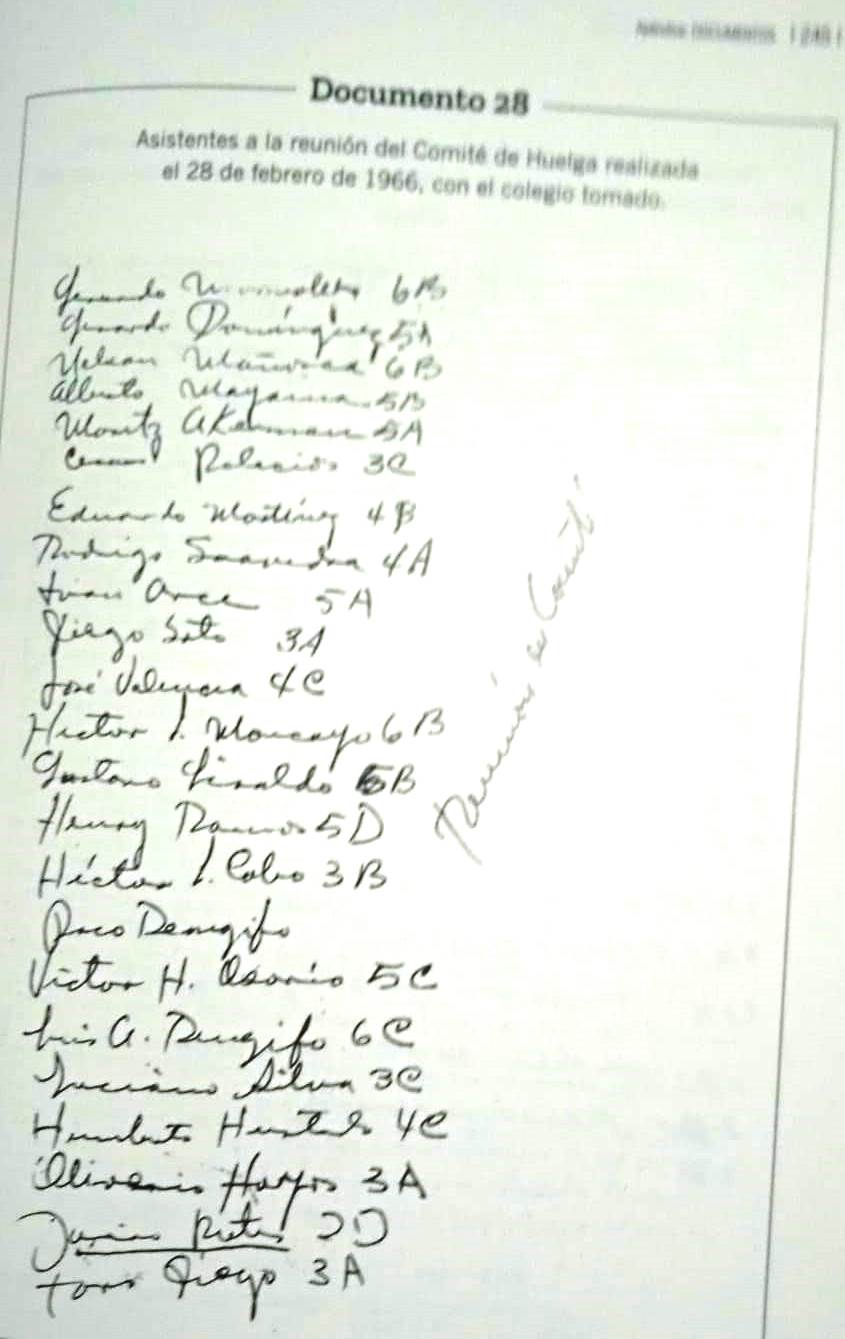 DOCUMENTOS | 245 |
Documento 28
Asistentes a la reunión del Comité de Huelga realizada
el 28 de febrero de 1966, con el colegio tomado.
6B
Gerardo Domínguez 5A
6B
Alberto 5B
Moritz Akerman 5A
Palacios 3C
Eduardo Martínez 4B
Rodrigo Saavedra 4A
Iván Arce 5A
Diego Soto 3A
José Valencia 4C
Héctor I. Moncayo 6B
Gustavo Giraldo 6B
Henry Ramos 5D
Héctor I. Cobo 3B
Paco Rengifo
Víctor H. Osorio 5C
Luis A. Rengifo 6C
Luciano Silva 3C
Humberto Hurtado 4C
Oliverio 3A
Diego 3A
Reunión de Comité